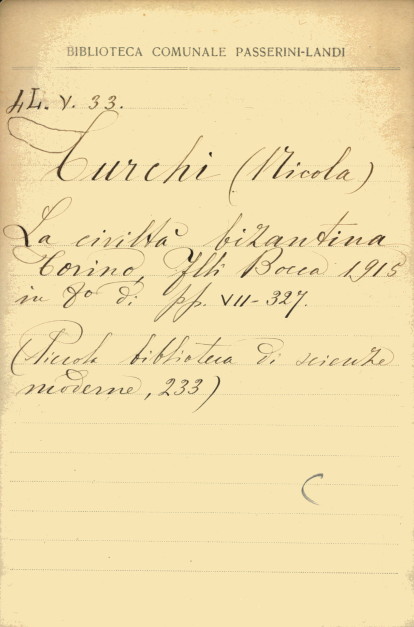 BIBLIOTECA COMUNALE PASSERINI-LANDI
4L. V. 33.
Turchi (Nicola)
La civiltà bizantina
Torino, Flli Bocca 1915
in 8° di pp. VII-327.
(Piccola biblioteca di scienze
moderne, 233)